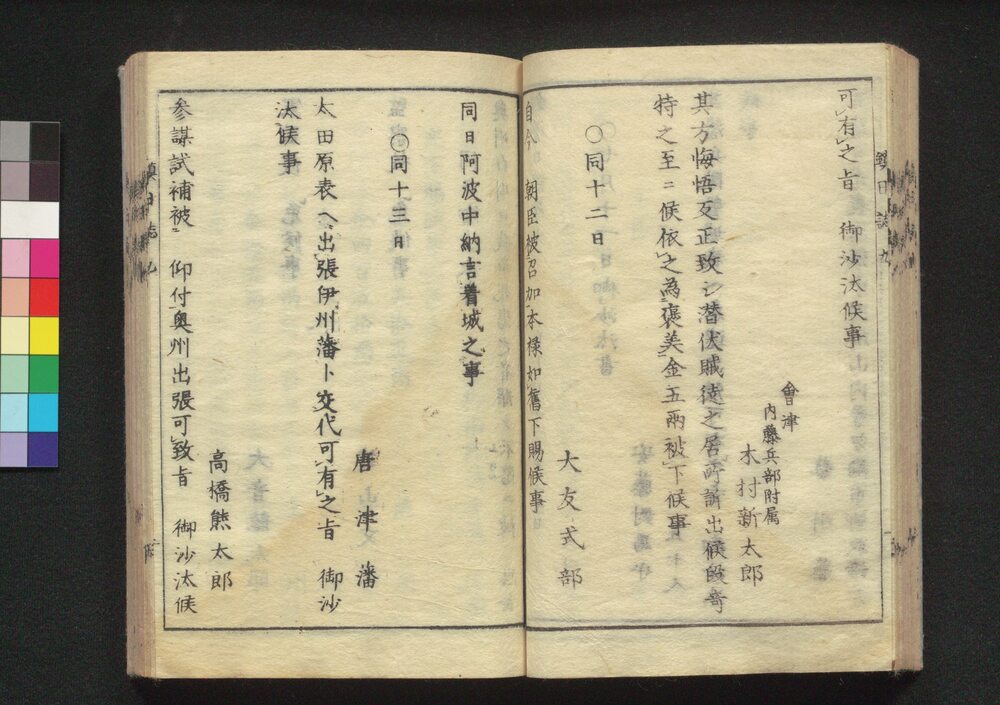 可有之旨　御沙汰候事
會津
内藤兵部附属
木村新太郎
其方悔悟反正致シ潜伏賊徒之居所訴出候段奇
特之至ニ候依之為褒美金五兩被下候事
〇同十二日
大友式部
自今　朝臣被召加本禄如舊下賜候事
同日阿波中納言着城之事
〇同十三日
唐津藩
太田原表ヘ出張伊州藩ト交代可有之旨　御沙
汰候事
高橋熊太郎
参謀試補被　仰付奥州出張可致旨　御沙汰候
鎮日誌九